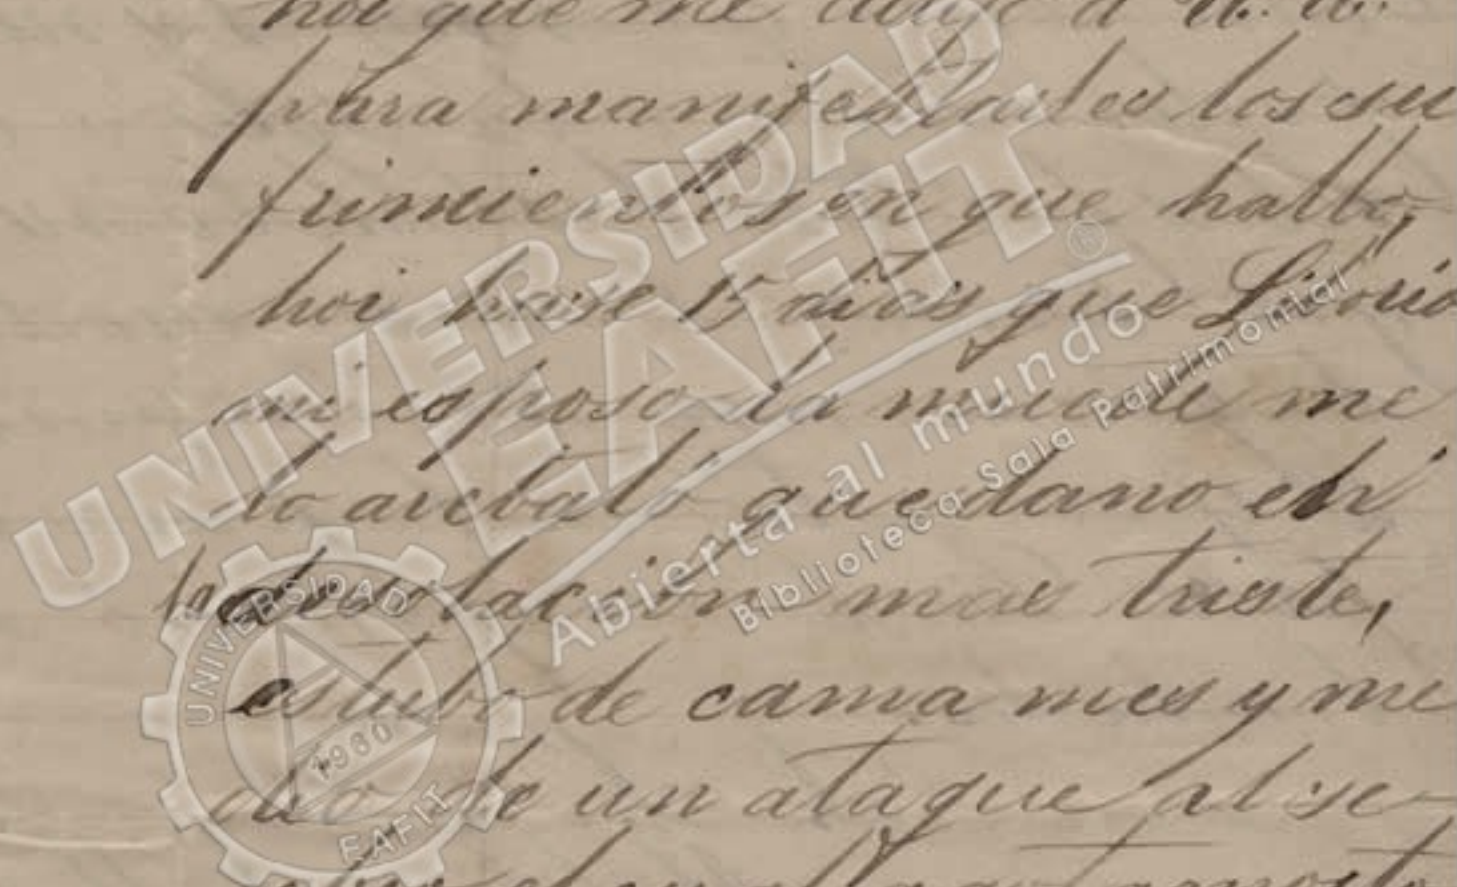 hoi que me dirijo a U. U.
para manifestarles los su
frimientos en que hallo,
hoi hase 15 dias que Liborio
mi esposo la muerte me
lo arebató quedano en
la desolación mas triste,
estubo de cama mes y me
dio de un ataque al se-
UNIVERSIDAD
EAFIT®
Abierta al mundo
Biblioteca Sala Patrimonial
UNIVERSIDAD
1960
EAFIT